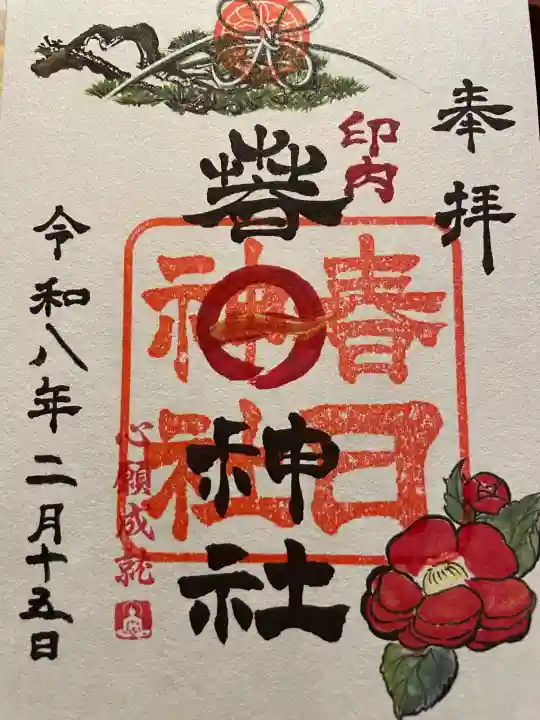 奉拝
印内
萅神社
春日
神社
心願成就
令和八年二月十五日